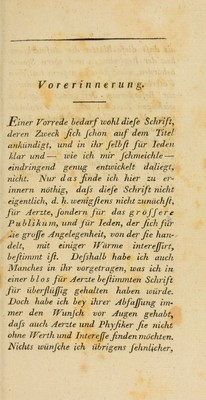 Vorerinnerung.
Einer Vorrede bedarf wohl dieſe Schrift,
deren Zweck ſich ſchon auf dem Titel
ankündigt, und in ihr ſelbſt für Ieden
klar und — wie ich mir ſchmeichle —
eindringend genug entwickelt daliegt,
nicht. Nur das finde ich hier zu er-
innern nöthig, daſs dieſe Schrift nicht
eigentlich, d. h. wenigſtens nicht zunächſt,
für Aerzte, ſondern für das gröſſere
Publikum, und für Ieden, der ſich für
die groſſe Angelegenheit, von der ſie han-
delt, mit einiger Wärme intereſſirt,
beſtimmt iſt. Deſshalb habe ich auch
Manches in ihr vorgetragen, was ich in
einer blos für Aerzte beſtimmten Schrift
für überflüſſig gehalten haben würde.
Doch habe ich bey ihrer Abfaſſung im-
mer den Wunſch vor Augen gehabt,
daſs auch Aerzte und Phyſiker ſie nicht
ohne Werth und Intereſſe finden möchten.
Nichts wünſche ich übrigens ſehnlicher,